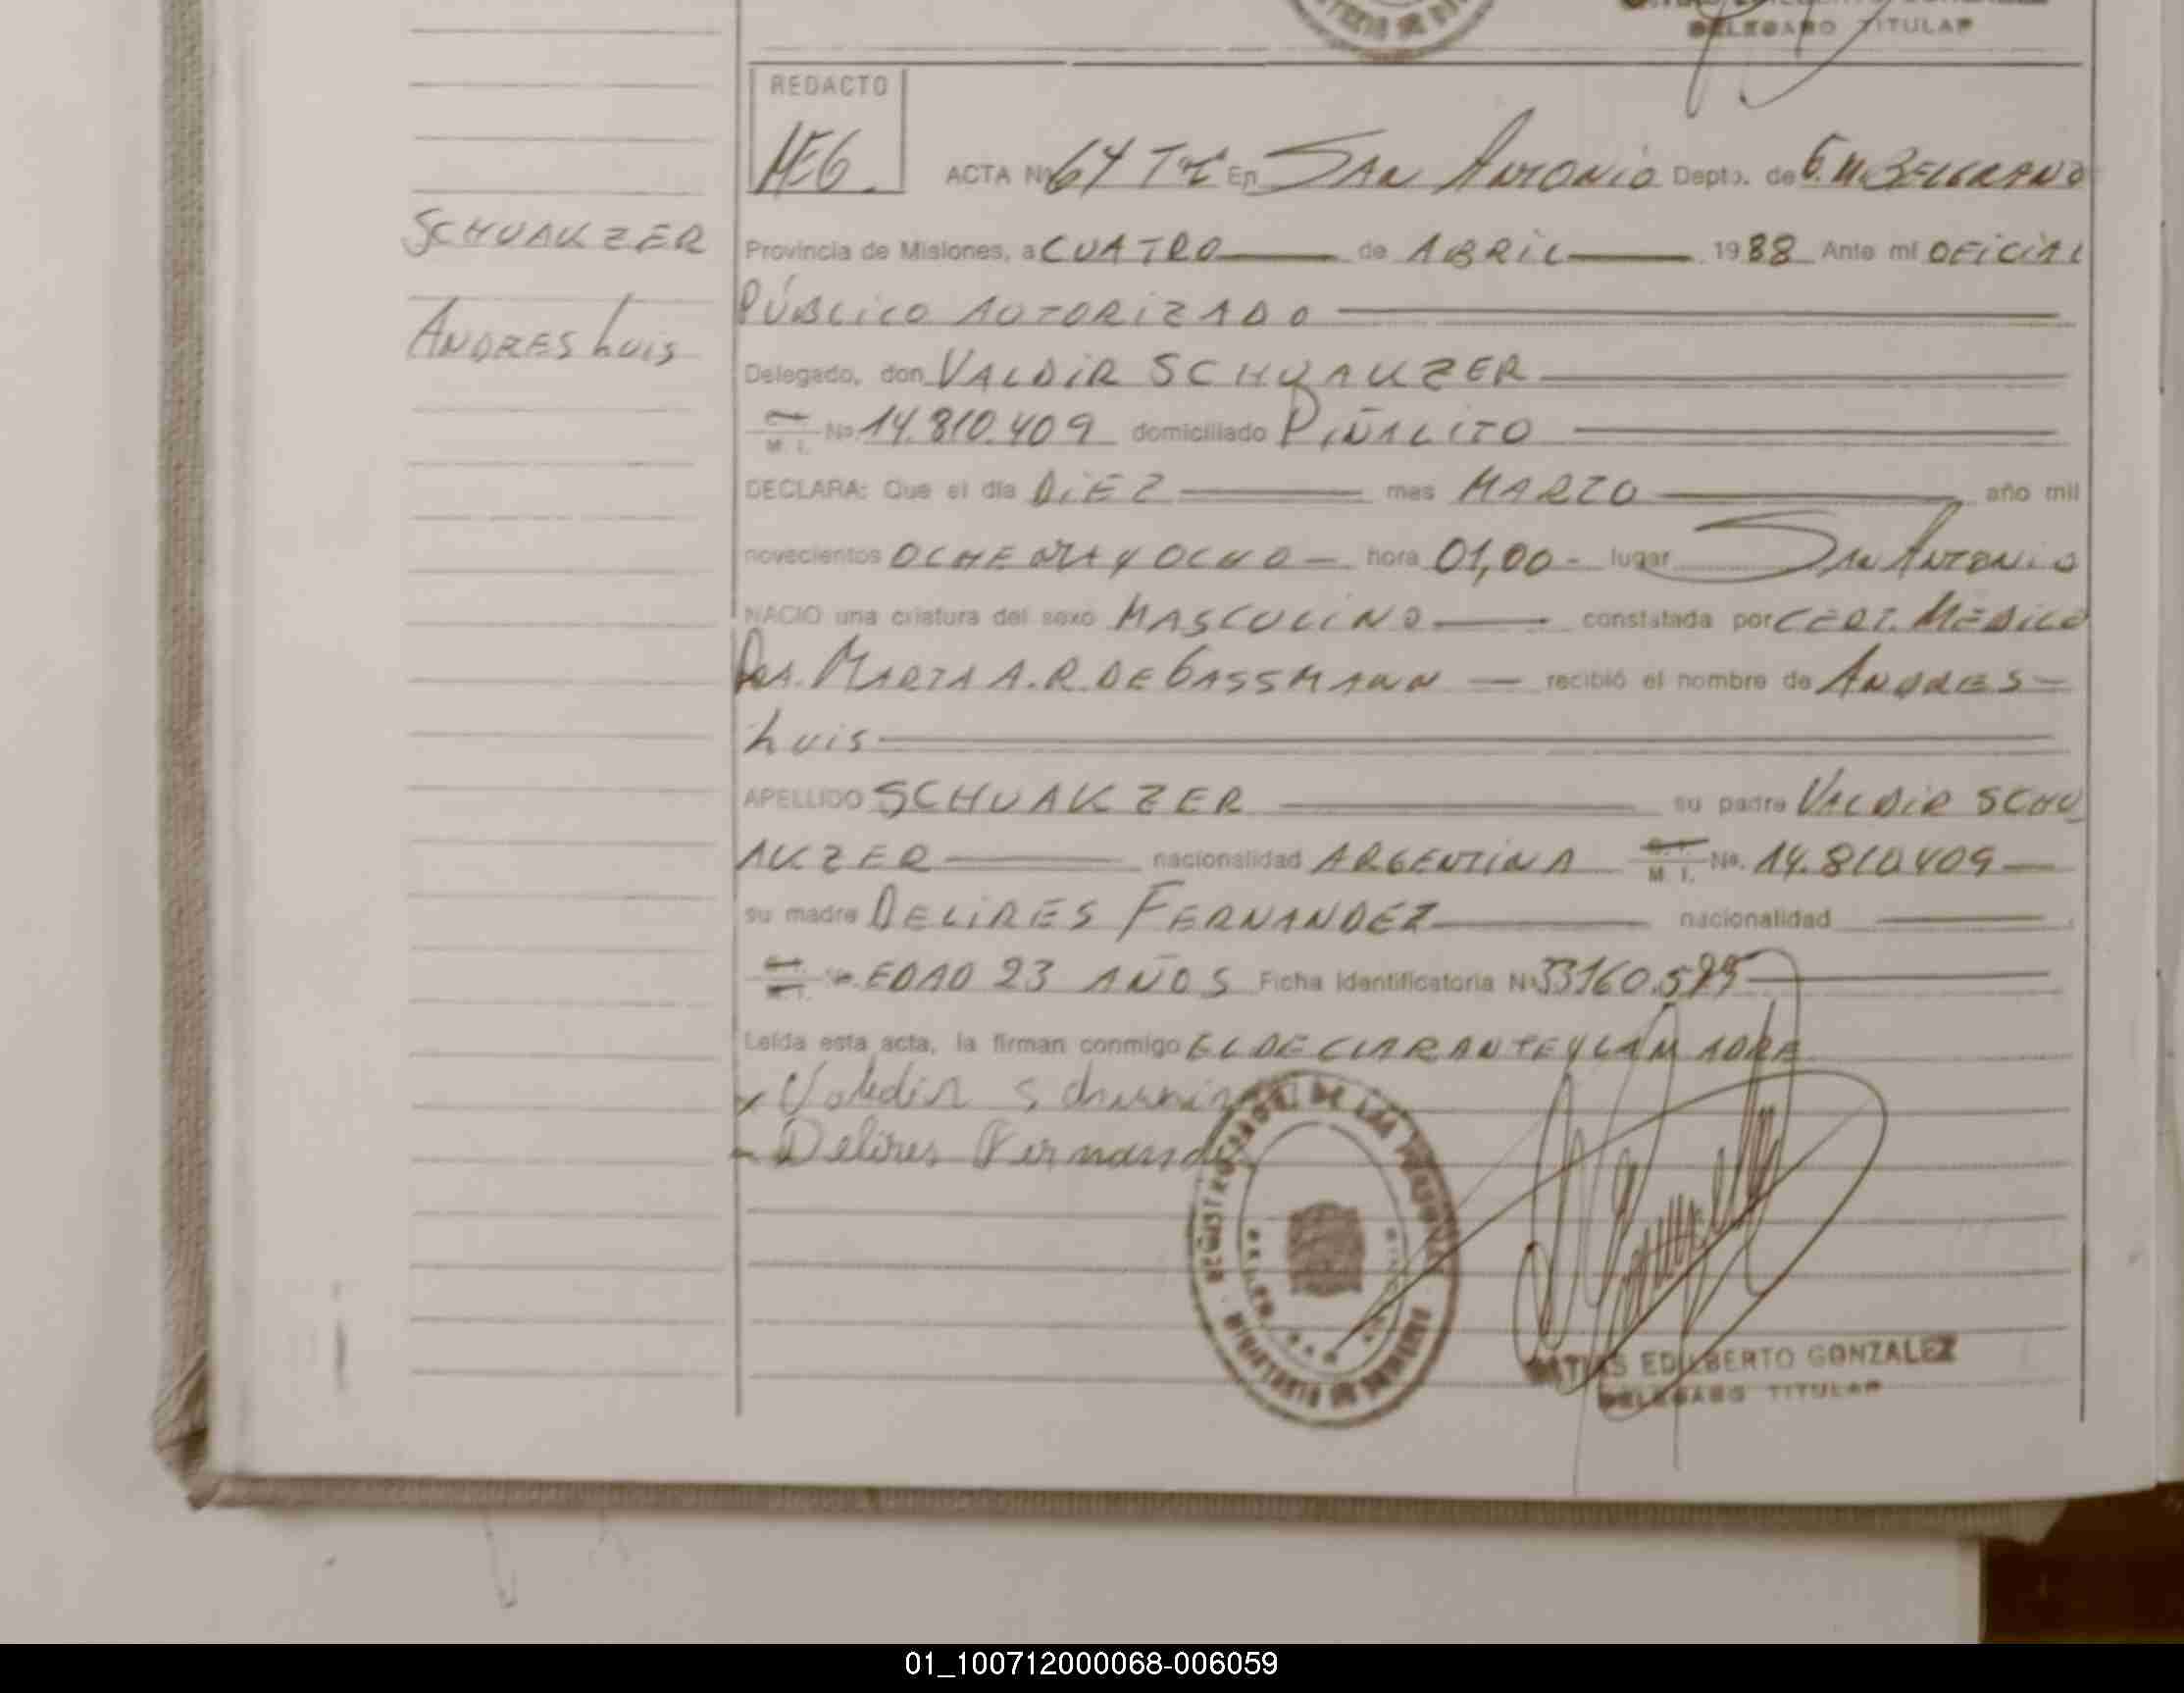 DELEGADO TITULAR
REDACTO
MEG.
ACTA Nº 64 Tº I En SAN ANTONIO Depto. de G. M. BELGRANO
SCHUAKZER
Provincia de Misiones, a CUATRO de ABRIL 1988 Ante mí OFICIAL
PÚBLICO AUTORIZADO
ANDRES LUIS
Delegado, don VALDIR SCHUAKZER
M. I. Nº 14.810.409 domiciliado PIÑALITO
DECLARA: Que el día DIEZ mes MARZO año mil
novecientos OCHENTA Y OCHO - hora 01,00 - lugar SAN ANTONIO
NACIO una criatura del sexo MASCULINO constatada por CERT. MÉDICO
DRA. MARTA A. R. DE GASSMANN - recibió el nombre de ANDRES -
LUIS
APELLIDO SCHUAKZER su padre VALDIR SCHU
AKZER nacionalidad ARGENTINA M. I. Nº. 14.810409
su madre DELIRES FERNANDEZ nacionalidad
EDAD 23 AÑOS Ficha Identificatoria Nº 33160.595
Leída esta acta, la firman conmigo EL DECLARANTE Y LA MADRE
x Valdir
- Delires Fernandez
REGISTRO DE LAS PERSONAS
MATIAS EDILBERTO GONZALEZ
DELEGADO TITULAR
01_100712000068-006059